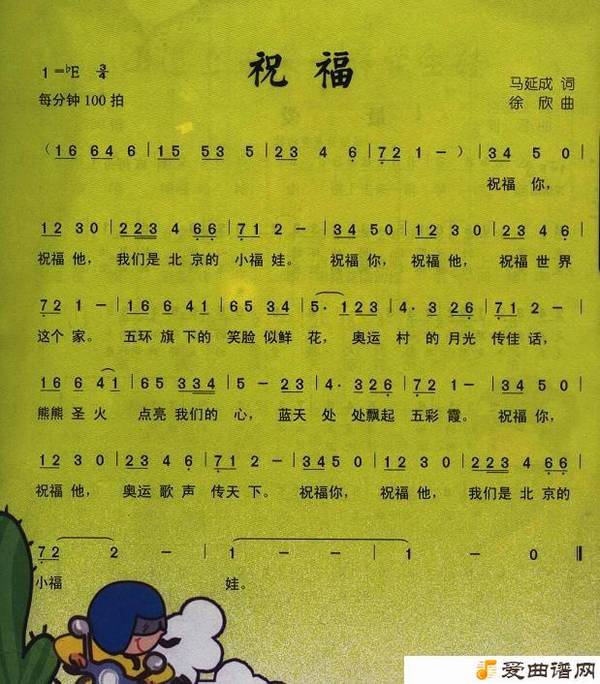 祝福
1=♭E 3/4
马延成 词
每分钟100拍
徐欣 曲
(16 646 | 15 535 | 23 4 6 | 72 1 - ) | 34 5 0
祝福 你,
12 3 0 | 223 4 66 | 71 2 - | 34 5 0 | 12 3 0 | 23 4 6
祝福 他, 我们是 北 京的 小福 娃。 祝福 你, 祝福 他, 祝福 世 界
72 1 - | 16 6 41 | 65 34 | 5· 123 | 4· 326 | 71 2 -
这个 家。 五环 旗 下的 笑脸 似鲜 花, 奥运 村 的月光 传佳 话,
16 6 41 | 65 334 | 5 - 23 | 4· 326 | 72 1 - | 34 5 0
熊熊 圣 火 点亮 我们的 心, 蓝天 处 处飘起 五彩 霞。 祝福 你,
12 3 0 | 23 4 6 | 71 2 - | 34 5 0 | 12 3 0 | 223 4 66
祝福 他, 奥运 歌 声 传天 下。 祝福 你, 祝福 他, 我们是 北 京的
72 2 - | 1 - - | 1 - 0 ‖
小福 娃。
爱曲谱网